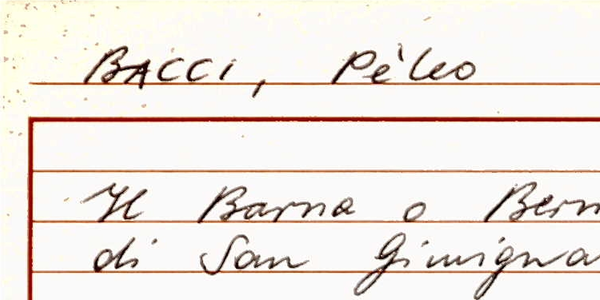 BACCI, Pèleo
Il Barna o Bern
di San Gimigna